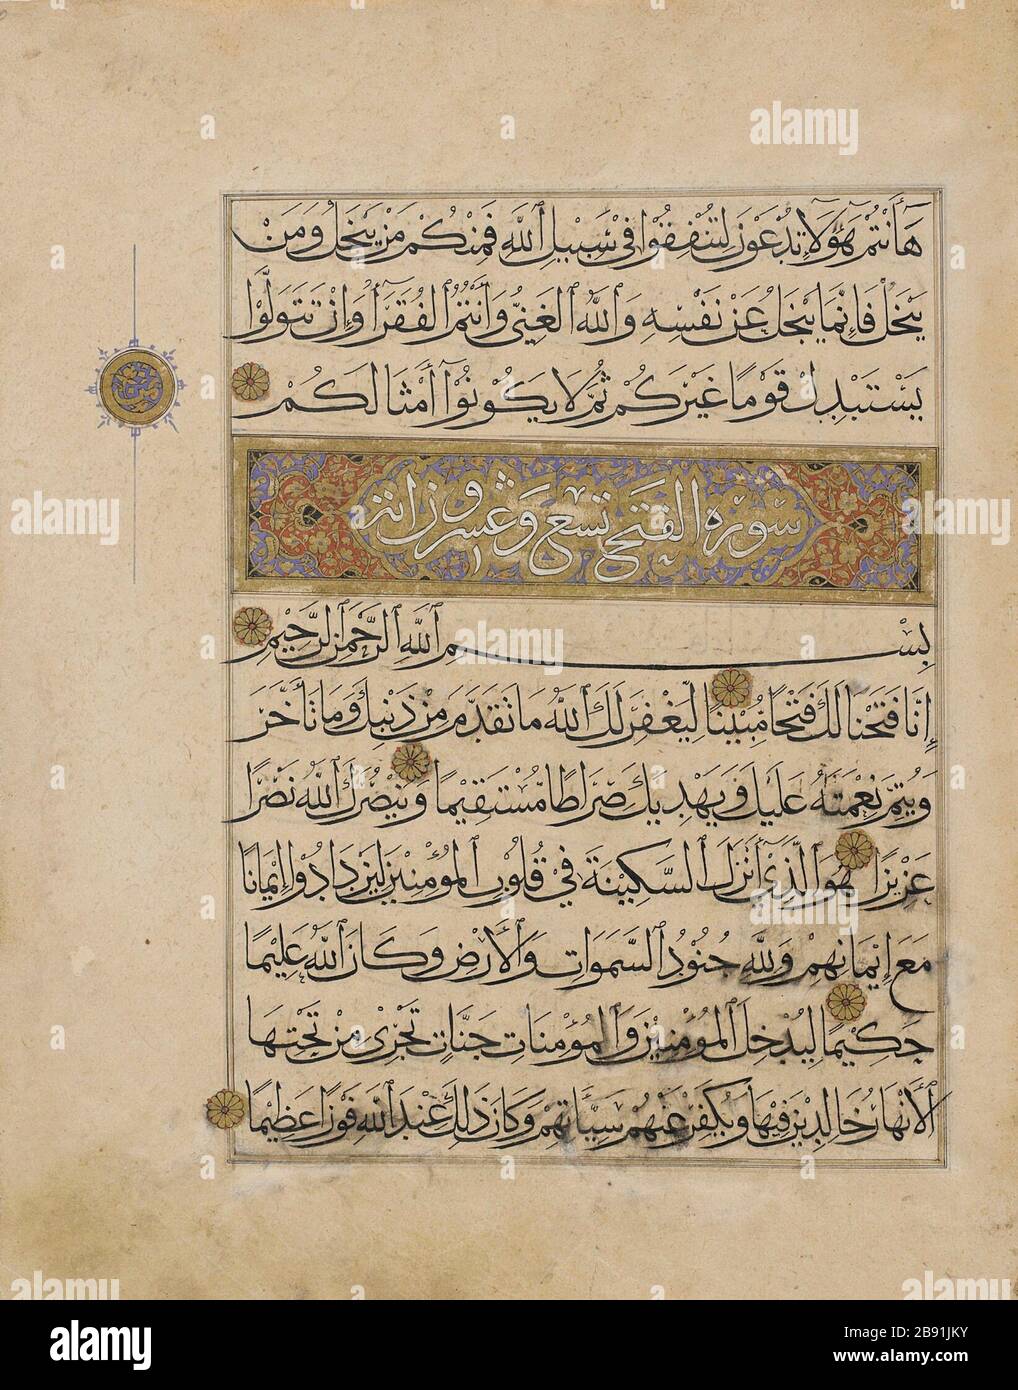 هَا أَنْتُمْ هَؤُلَاءِ تُدْعَوْنَ لِتُنْفِقُوا فِي سَبِيلِ اللَّهِ فَمِنْكُمْ مَنْ يَبْخَلُ وَمَنْ
يَبْخَلْ فَإِنَّمَا يَبْخَلُ عَنْ نَفْسِهِ وَاللَّهُ الْغَنِيُّ وَأَنْتُمُ الْفُقَرَاءُ وَإِنْ تَتَوَلَّوْا
يَسْتَبْدِلْ قَوْمًا غَيْرَكُمْ ثُمَّ لَا يَكُونُوا أَمْثَالَكُمْ
سورة الفتح تسع وعشرون آية
بِسْمِ اللَّهِ الرَّحْمَنِ الرَّحِيمِ
إِنَّا فَتَحْنَا لَكَ فَتْحًا مُبِينًا لِيَغْفِرَ لَكَ اللَّهُ مَا تَقَدَّمَ مِنْ ذَنْبِكَ وَمَا تَأَخَّرَ
وَيُتِمَّ نِعْمَتَهُ عَلَيْكَ وَيَهْدِيَكَ صِرَاطًا مُسْتَقِيمًا وَيَنْصُرَكَ اللَّهُ نَصْرًا
عَزِيزًا هُوَ الَّذِي أَنْزَلَ السَّكِينَةَ فِي قُلُوبِ الْمُؤْمِنِينَ لِيَزْدَادُوا إِيمَانًا
مَعَ إِيمَانِهِمْ وَلِلَّهِ جُنُودُ السَّمَوَاتِ وَالْأَرْضِ وَكَانَ اللَّهُ عَلِيمًا
حَكِيمًا لِيُدْخِلَ الْمُؤْمِنِينَ وَالْمُؤْمِنَاتِ جَنَّاتٍ تَجْرِي مِنْ تَحْتِهَا
الْأَنْهَارُ خَالِدِينَ فِيهَا وَيُكَفِّرَ عَنْهُمْ سَيِّئَاتِهِمْ وَكَانَ ذَلِكَ عِنْدَ اللَّهِ فَوْزًا عَظِيمًا
alamy
alamy
Image ID: 2B91JKY
www.alamy.com